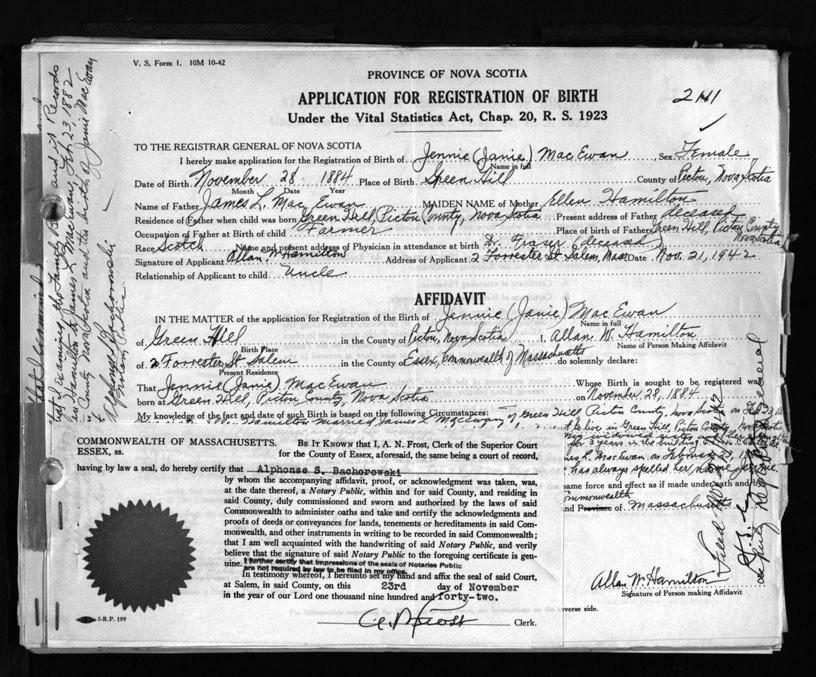 V. S. Form 1. 10M 10-42
PROVINCE OF NOVA SCOTIA
APPLICATION FOR REGISTRATION OF BIRTH
2141
Under the Vital Statistics Act, Chap. 20, R. S. 1923
TO THE REGISTRAR GENERAL OF NOVA SCOTIA
I hereby make application for the Registration of Birth of Jennie (Janie) Mac Ewan Sex Female
Name in full
Date of Birth November 28 1884 Place of Birth Green Hill County of Pictou, Nova Scotia
Month Date Year
Name of Father James L. Mac Ewan MAIDEN NAME of Mother Ellen Hamilton
Residence of Father when child was born Green Hill, Pictou County, Nova Scotia Present address of Father deceased
Occupation of Father at Birth of child Farmer Place of birth of Father Green Hill, Pictou County
Nova Scotia
Race Scotch Name and present address of Physician in attendance at birth Dr. Fraser (deceased)
Signature of Applicant Allan W Hamilton Address of Applicant 2 Forrester St Salem, Mass Date Nov. 21, 1942
Relationship of Applicant to child Uncle
AFFIDAVIT
IN THE MATTER of the application for Registration of the Birth of Jennie (Janie) Mac Ewan
Name in full
of Green Hill in the County of Pictou, Nova Scotia I, Allan W. Hamilton
Birth Place Name of Person Making Affidavit
of 2 Forrester St Salem in the County of Essex, Commonwealth of Massachusetts do solemnly declare:
Present Residence
That Jennie (Janie) Mac Ewan Whose Birth is sought to be registered was
born at Green Hill, Pictou County, Nova Scotia on November 28, 1884
My knowledge of the fact and date of such Birth is based on the following Circumstances:
Hamilton married James L MacEwan of Green Hill Pictou County, Nova Scotia on Feb 23
to live in Green Hill, Pictou County, Nova
has always spelled her name
same force and effect as if made under oath and by
Commonwealth
and Province of Massachusetts
Allan W Hamilton
Signature of Person making Affidavit
reverse side.
COMMONWEALTH OF MASSACHUSETTS.
ESSEX, ss.
BE IT KNOWN that I, A. N. FROST, Clerk of the Superior Court
for the County of Essex, aforesaid, the same being a court of record,
having by law a seal, do hereby certify that Alphonse S. Bachorowski
by whom the accompanying affidavit, proof, or acknowledgment was taken, was,
at the date thereof, a Notary Public, within and for said County, and residing in
said County, duly commissioned and sworn and authorized by the laws of said
Commonwealth to administer oaths and take and certify the acknowledgments and
proofs of deeds or conveyances for lands, tenements or hereditaments in said Com-
monwealth, and other instruments in writing to be recorded in said Commonwealth;
that I am well acquainted with the handwriting of said Notary Public, and verily
believe that the signature of said Notary Public to the foregoing certificate is gen-
uine. I further certify that impressions of the seals of Notaries Public
are not required by law to be filed in my office.
In testimony whereof, I hereunto set my hand and affix the seal of said Court,
at Salem, in said County, on this 23rd day of November
in the year of our Lord one thousand nine hundred and forty-two.
A. N. Frost Clerk.
I-R.P. 199
that I examined the Family Bible and its Records
Hamilton to James L MacEwan, Feb. 23, 1882
County Nova Scotia and the birth of Janie MacEwan
Alphonse S. Bachorowski
Notary Public
Deputy Registrar General